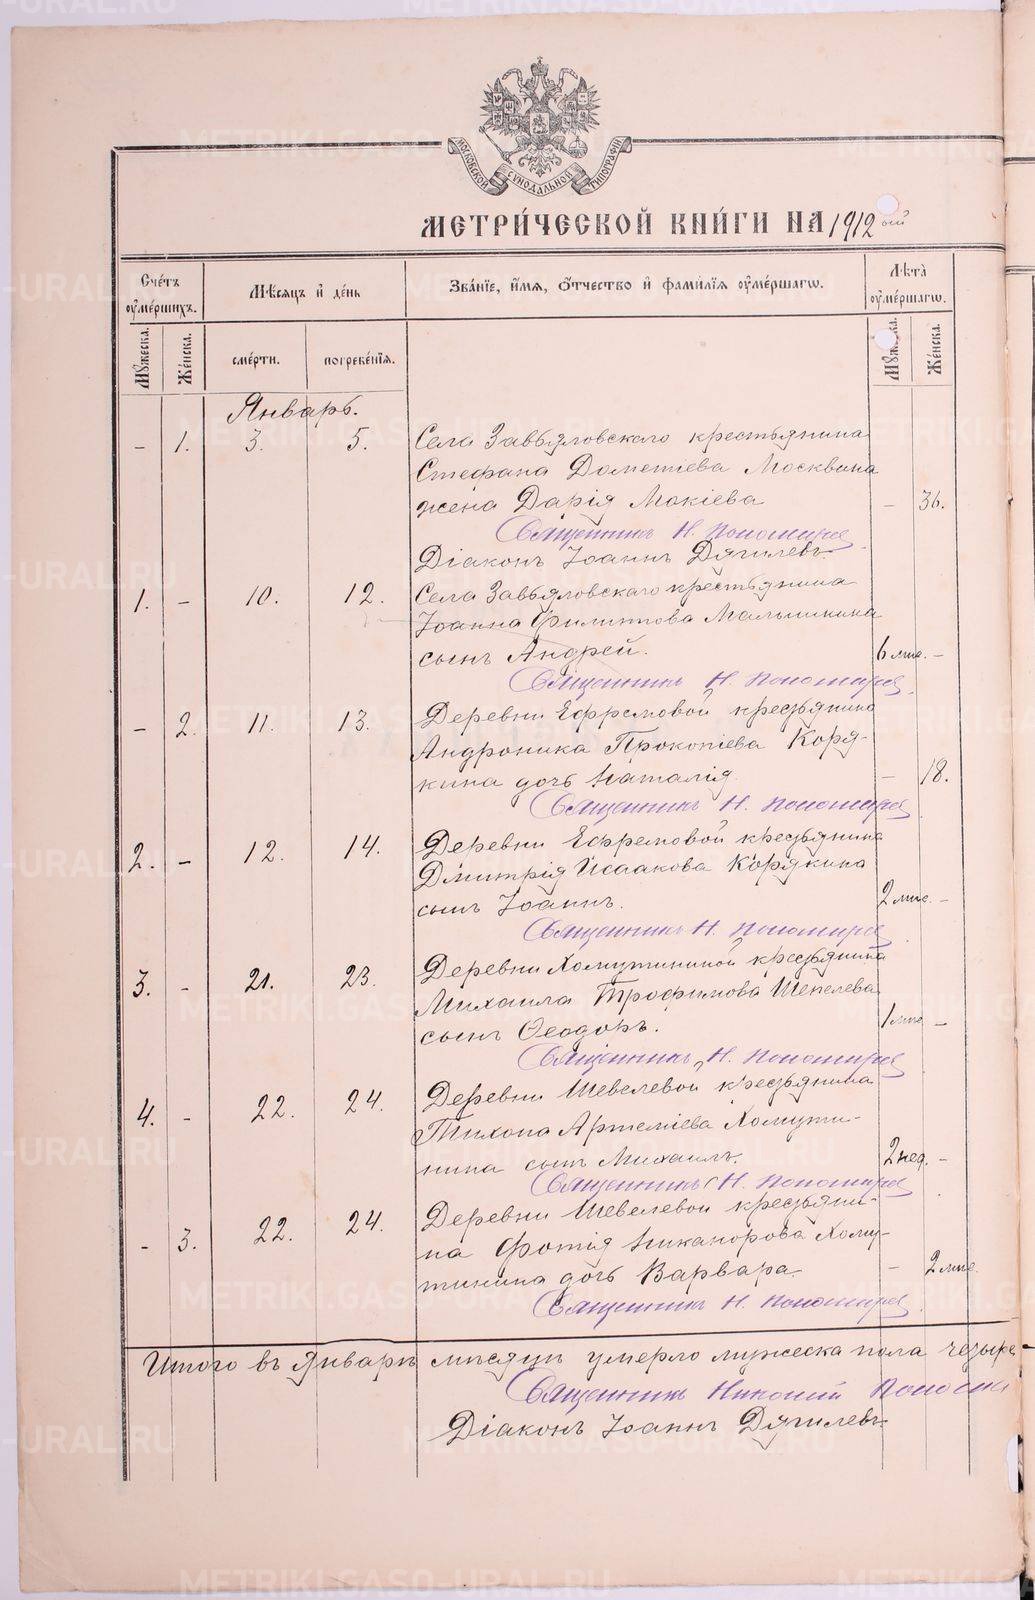 МОСКОВСКОЙ СѴНОДАЛЬНОЙ ТИПОГРАФІИ
МЕТРИ́ЧЕСКОЙ КНИ́ГИ НА 1912 ой
Сче́тъ ᲂу҆ме́ршихъ.
Мѣ́сяцъ и҆ де́нь
Зва́нїе, и҆́мѧ, ѻ҆́тчество и҆ фами́лїѧ ᲂу҆ме́ршагѡ.
Лѣ́та ᲂу҆ме́ршагѡ.
Мꙋ́жеска.
Же́нска.
сме́рти.
погребе́нїѧ.
Мꙋ́жеска.
Же́нска.
Январь.
- 1. 3. 5. Села Завьяловскаго крестьянина
Стефана Дометіева Москвина
жена Дарія Мокіева - 36.
Священникъ Н. Пономарев
Діаконъ Іоаннъ Дягилевъ
1. - 10. 12. Села Завьяловскаго крестьянина
Іоанна Филиппова Мальшикина
сынъ Андрей. 6 мѣс. -
Священникъ Н. Пономарев
- 2. 11. 13. Деревни Ефремовой крестьянина
Андроника Прокопіева Коря-
кина дочь Наталія - 18.
Священникъ Н. Пономарев
2. - 12. 14. Деревни Ефремовой крестьянина
Дмитрія Исаакова Корякина
сынъ Іоаннъ. 2 мѣс. -
Священникъ Н. Пономарев
3. - 21. 23. Деревни Хомутининой крестьянина
Михаила Трофимова Шепелева
сынъ Ѳеодоръ. 1 мѣс. -
Священникъ Н. Пономарев
4. - 22. 24. Деревни Шевелевой крестьянина
Тихона Артеміева Хомути-
нина сынъ Михаилъ. 2 нед. -
Священникъ Н. Пономарев
- 3. 22. 24. Деревни Шевелевой крестьяни-
на Фотія Никанорова Хому-
тинина дочь Варвара - 2 мѣс.
Священникъ Н. Пономарев
Итого въ Январѣ мѣсяцѣ умерло мужеска пола четыре
Священникъ Николай Пономар
Діаконъ Іоаннъ Дягилевъ
METRIKI.GASO-URAL.RU